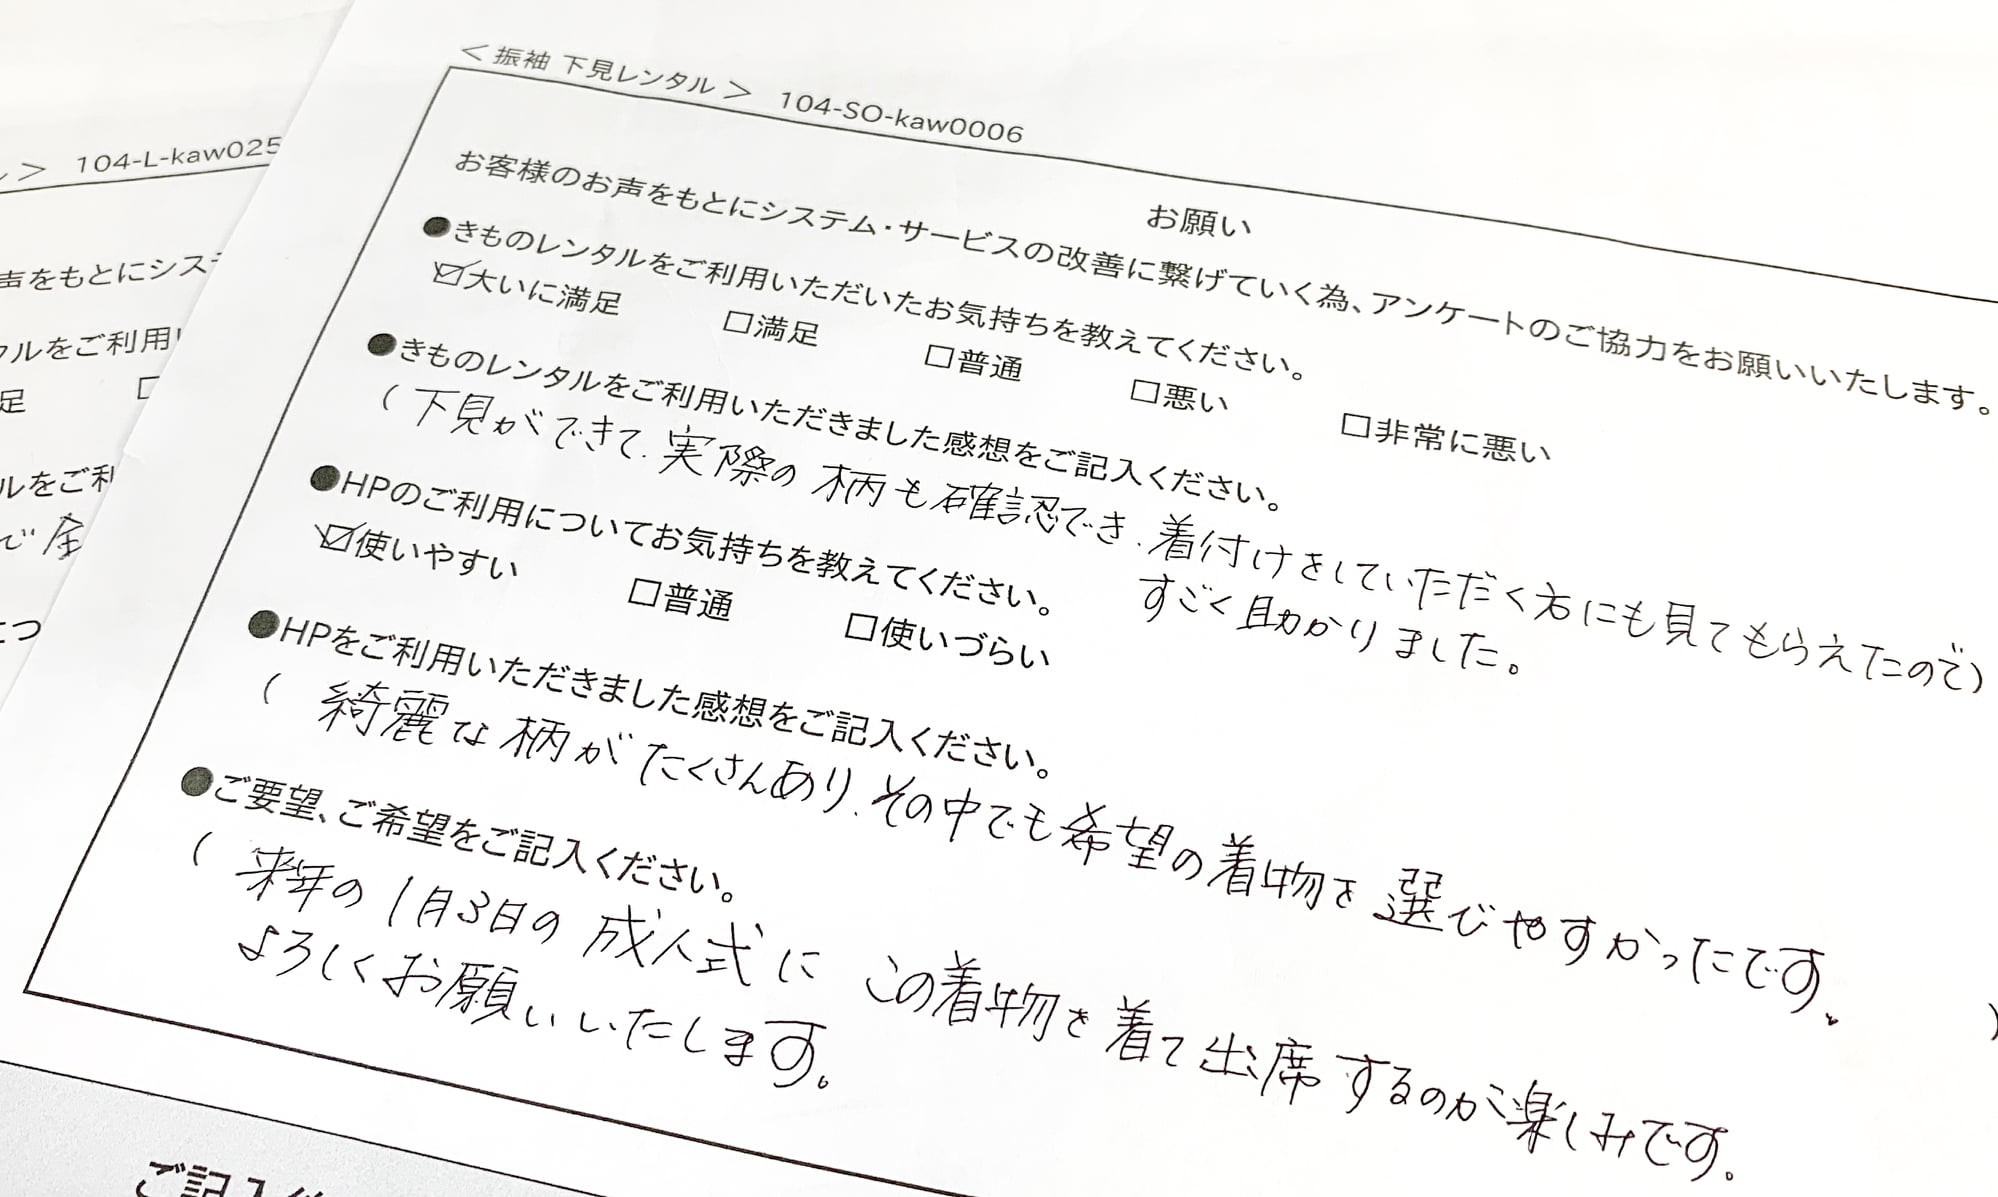 ＜振袖 下見レンタル＞ 104-SO-kaw0006
お願い
お客様のお声をもとにシステム・サービスの改善に繋げていく為、アンケートのご協力をお願いいたします。
●きものレンタルをご利用いただいたお気持ちを教えてください。
☑大いに満足 □満足 □普通 □悪い □非常に悪い
●きものレンタルをご利用いただきました感想をご記入ください。
（下見ができて、実際の柄も確認でき、着付けをしていただく方にも見てもらえたので）
すごく助かりました。
●HPのご利用についてお気持ちを教えてください。
☑使いやすい □普通 □使いづらい
●HPをご利用いただきました感想をご記入ください。
（綺麗な柄がたくさんあり、その中でも希望の着物を選びやすかったです。）
●ご要望、ご希望をご記入ください。
（来年の1月3日の成人式にこの着物を着て出席するのが楽しみです。
よろしくお願いいたします。
＞ 104-L-kaw025
声をもとにシス
タルをご利用
足 □
ルをご利
で
につ
ご記入